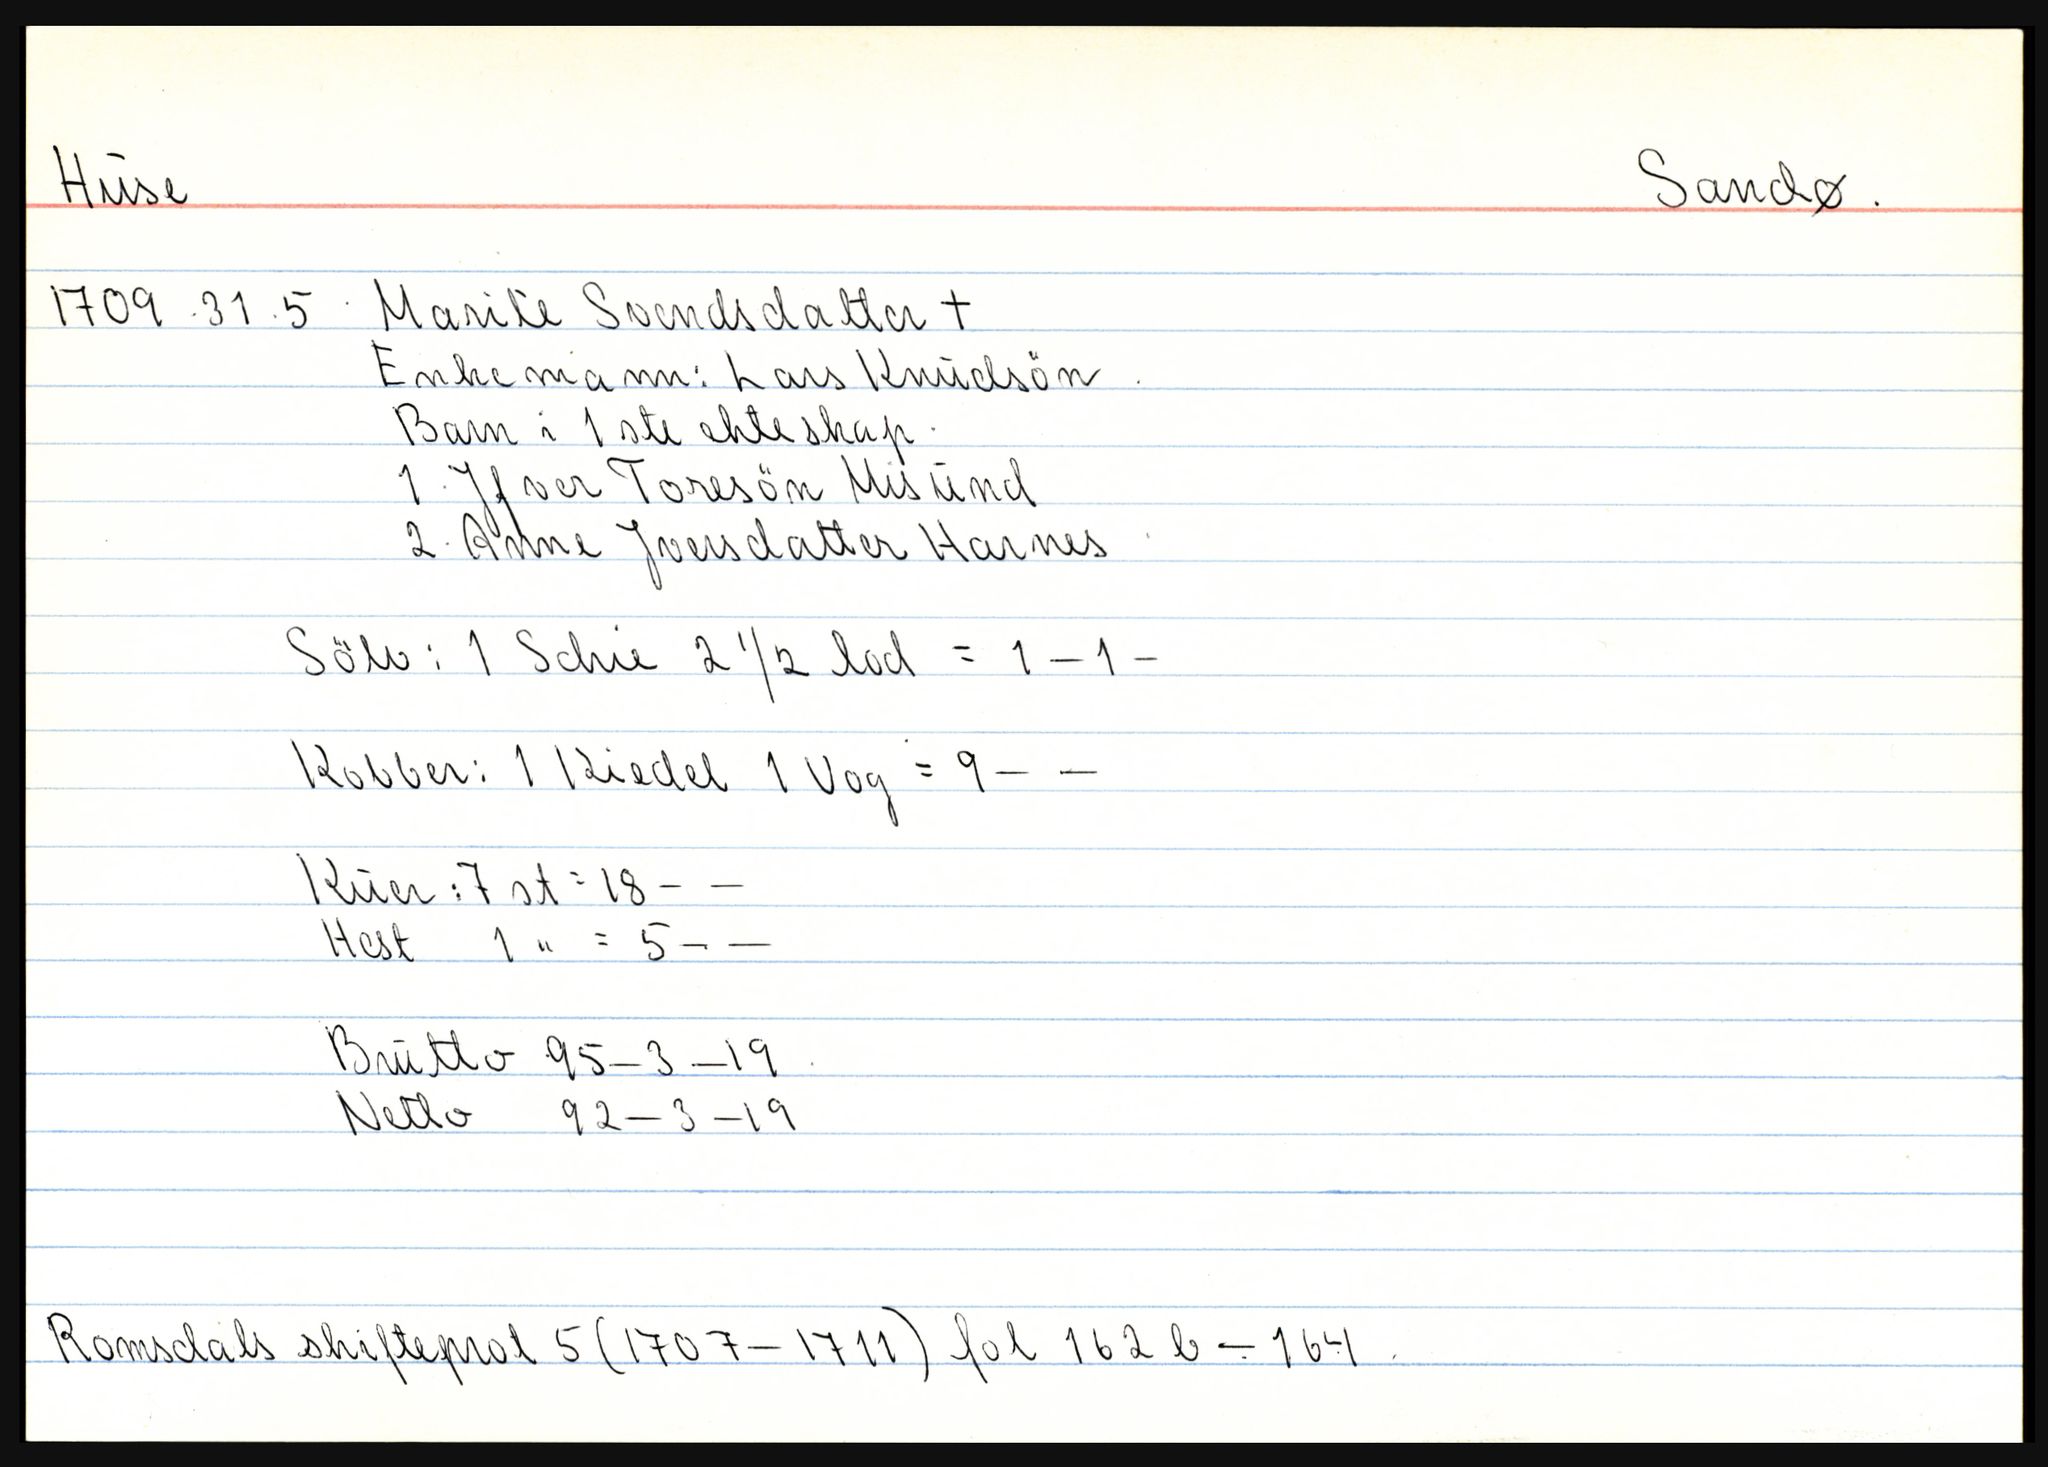 Hüse Sandø.
1709.31.5. Marite Svendsdatter +
Enkemann: Lars Knüdsön.
Barn i 1ste ekteskap.
1. Ifver Toresön Misünd
2. Anne Iversdatter Harnes
Sölv: 1 Schie 2 1/2 lod = 1 – 1 –
Kobber: 1 Kiedel 1 Vog = 9 – –
Küer: 7 st = 18 – –
Hest 1 " = 5 – –
Brütto 95 – 3 – 19.
Netto 92 – 3 – 19
Romsdals skifteprot 5 (1707 – 1711) fol 162 b – 164.